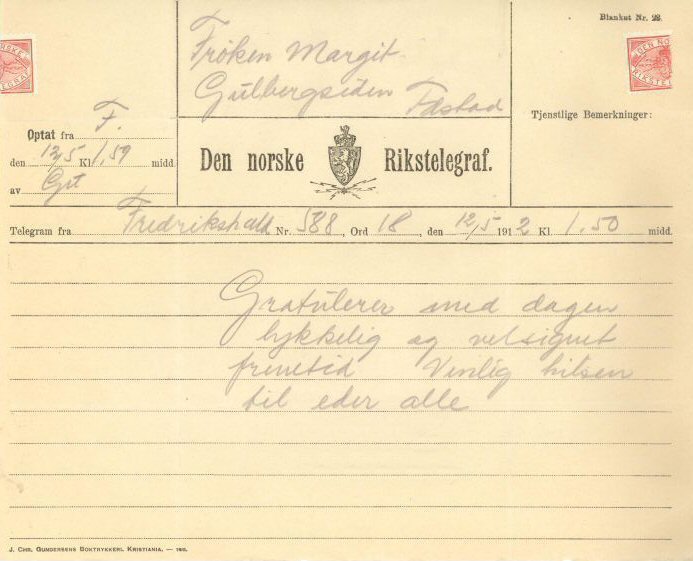 Blanket Nr. 22.
Frøken Margit
Gulbergsiden
Tjenstlige Bemerkninger:
Optat fra F.
den 12/5 Kl 1,59 midd.
av
Den norske Rikstelegraf.
Telegram fra Fredrikshald Nr. 588, Ord 18, den 12/5 1912 Kl 1.50 midd.
Gratulerer med dagen
lykkelig og velsignet
fremtid Venlig hilsen
til eder alle
J. Chr. Gundersens Boktrykkeri, Kristiania. —